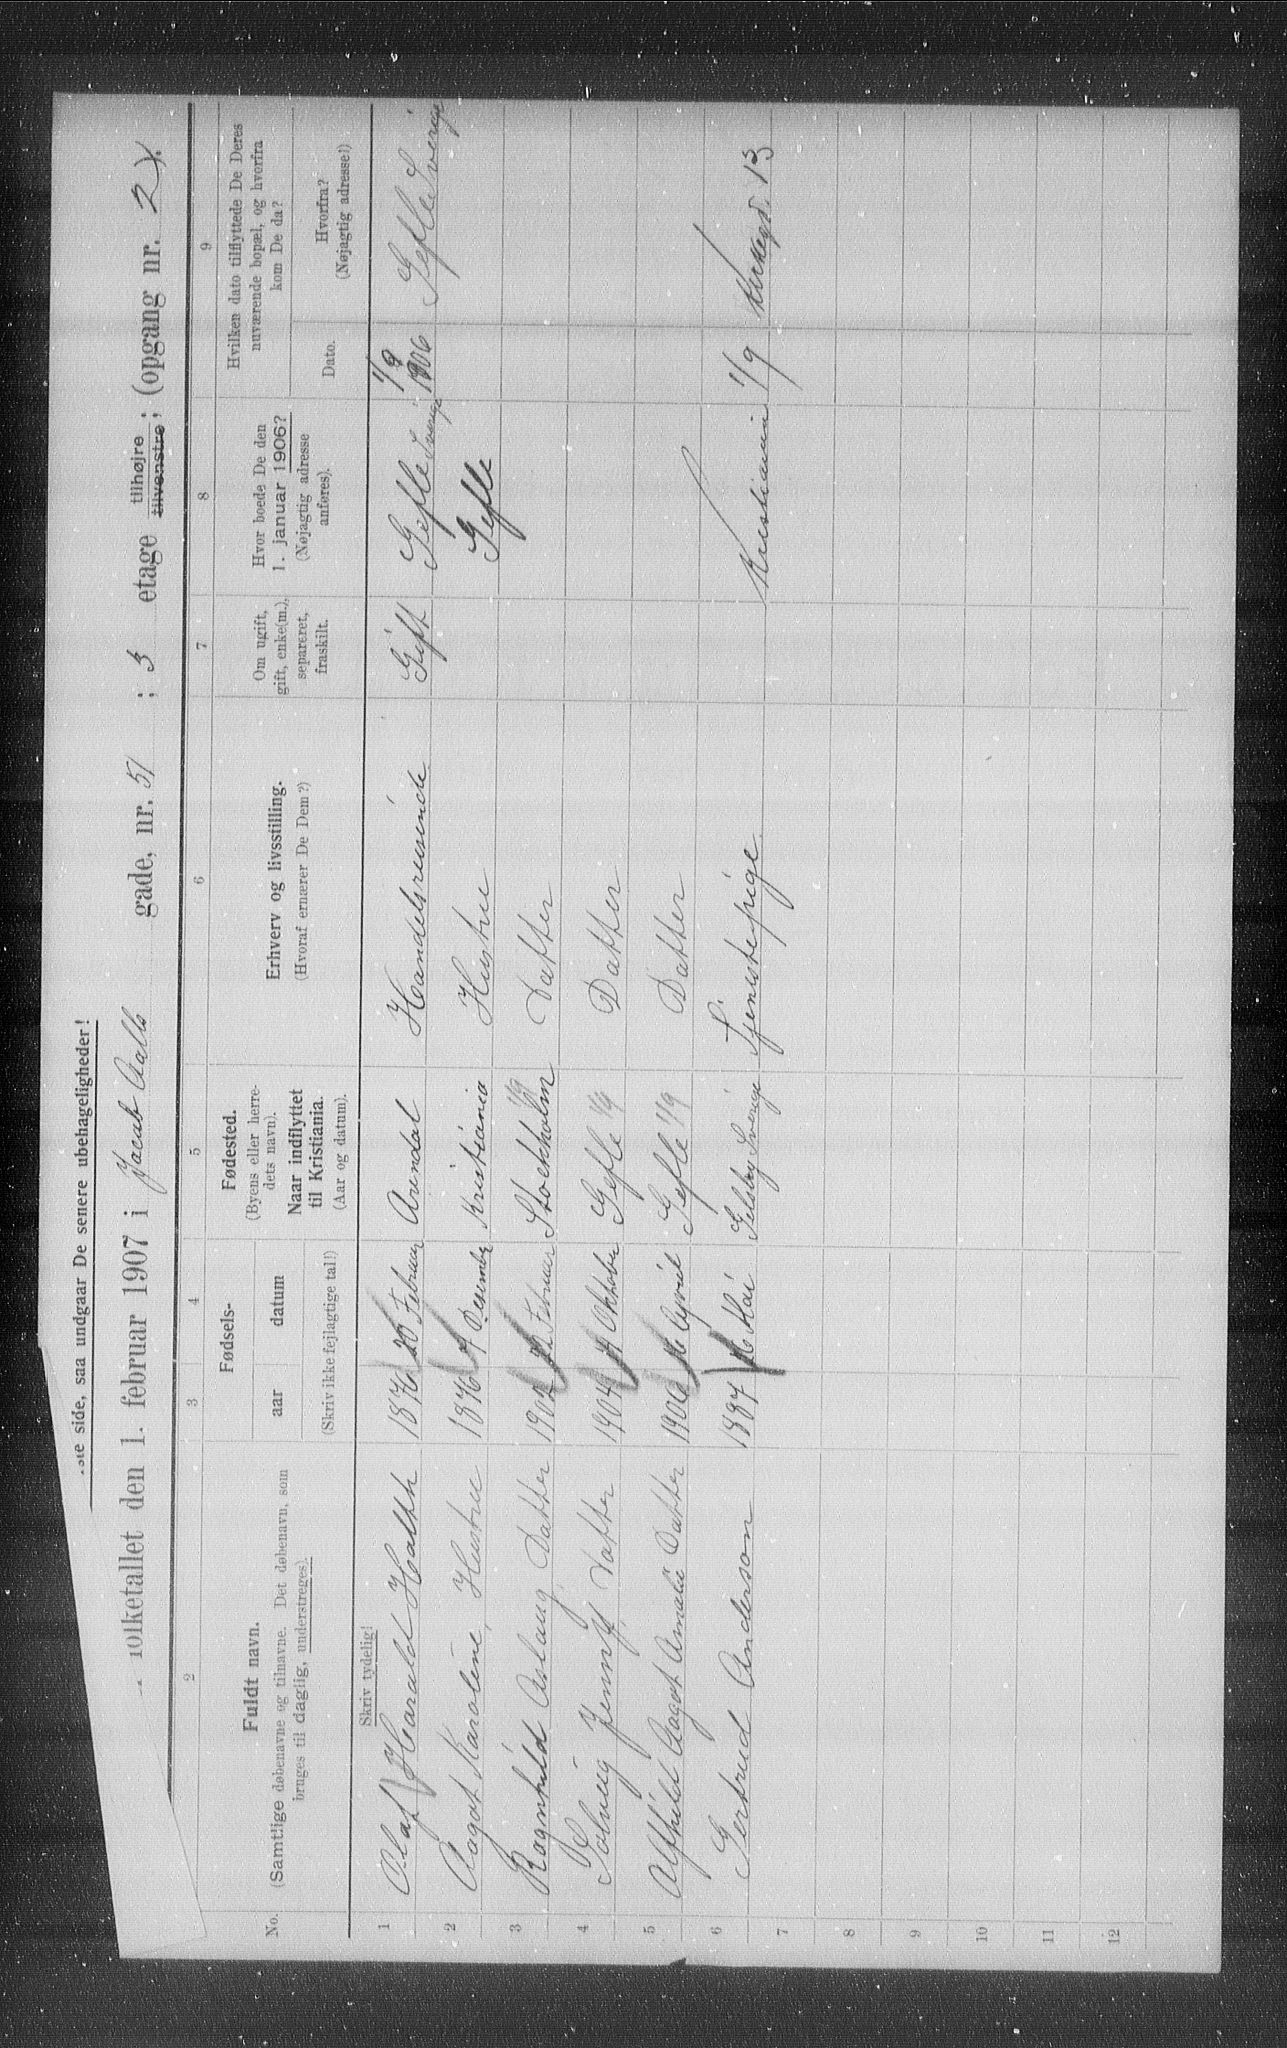 side, saa undgaar De senere ubehageligheder!
folketallet den 1. februar 1907 i Jacob Aalls gade, nr. 51 ; 3 etage tilhøjre tilvenstre; (opgang nr. 2).
2 3 4 5 6 7 8 9
No.
Fuldt navn.
(Samtlige døbenavne og tilnavne. Det døbenavn, som
bruges til daglig, understreges).
Fødsels-
aar datum
(Skriv ikke fejlagtige tal!)
Fødested.
(Byens eller herre-
dets navn).
Naar indflyttet
til Kristiania.
(Aar og datum).
Erhverv og livsstilling.
(Hvoraf ernærer De Dem?)
Om ugift,
gift, enke(m.),
separeret,
fraskilt.
Hvor boede De den
1. januar 1906?
(Nøjagtig adresse
anføres).
Hvilken dato tilflyttede De Deres
nuværende bopæl, og hvorfra
kom De da?
Dato.
Hvorfra?
(Nøjagtig adresse!)
Skriv tydelig!
1 Olaf Harald Halth 1876 20 Februar Arendal Handelsreisende Gift Gefle Sverige 1/9 1906 Gefle Sverige
2 Aagot Karoline, Hustru 1876 7 Desember Kristiania Hustru Gefle
3 Ragnhild Aslaug, Datter 1902 22 Februar Stockholm 1/9 Datter
4 Solveig Jenny, Datter 1904 4 Oktober Gefle 1/9 Datter
5 Alfhild Aagot Amalie Datter 1906 16 April Gefle 1/9 Datter
6 Gertrud Anderson 1887 16 Mai Sverige Tjenestepige Kristiania 1/9 Kirkegd. 13
7
8
9
10
11
12